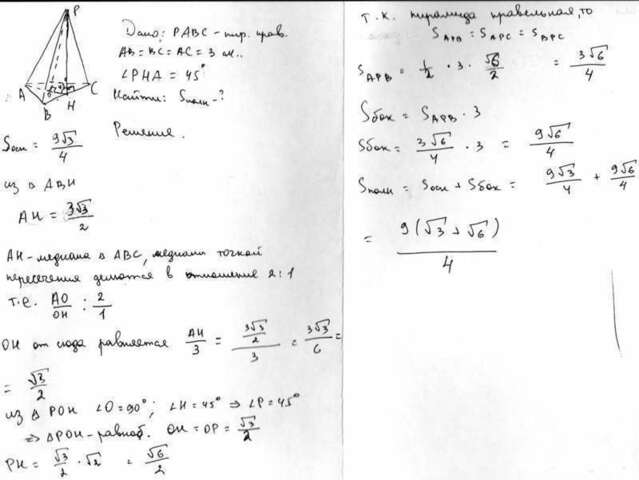 P
A
B
C
H
Дано: PABC - пир. прав.
AB = BC = AC = 3 м..
∠PHA = 45°
Найти: Sполн - ?
Sосн = 9√3/4
Решение.
из Δ ABH
AH = 3√3/2
AH - медиана в ABC, медианы точкой
пересечения делятся в отношение 2:1
т.е. AO/OH : 2/1
OH от сюда равняется AH/3 = (3√3/2)/3 = 3√3/6 =
= √3/2
из Δ POH ∠O = 90°; ∠H = 45° ⇒ ∠P = 45°
⇒ ΔPOH - равноб. OH = OP = √3/2
PH = √3/2 · √2 = √6/2
т.к. пирамида правельная, то
SAPB = SAPC = SBPC
SAPB = 1/2 · 3 · √6/2 = 3√6/4
Sбок = SAPB · 3
Sбок = 3√6/4 · 3 = 9√6/4
Sполн = Sосн + Sбок = 9√3/4 + 9√6/4
= 9(√3 + √6)/4